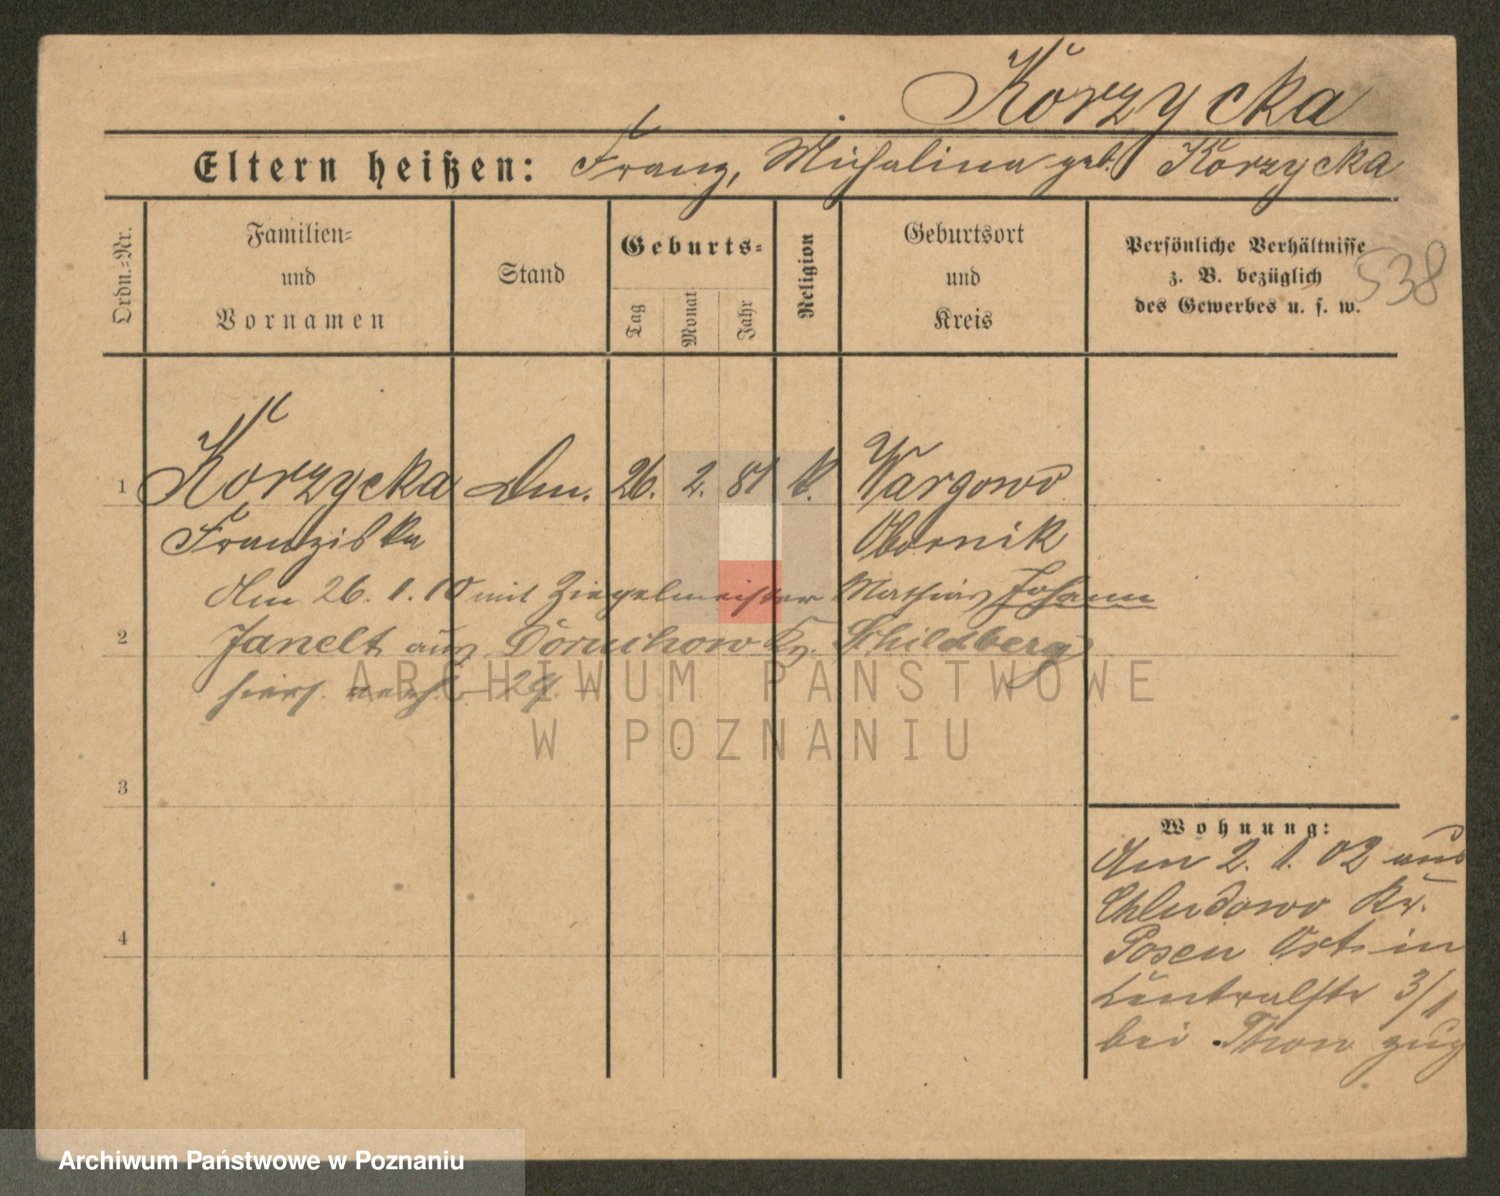 Korzycka
Eltern heißen: Franz, Michalina geb. Korzycka
Ordn.-Nr.
Familien-
und
Vornamen
Stand
Geburts-
Tag
Monat
Jahr
Religion
Geburtsort
und
Kreis
Persönliche Verhältnisse
z. B. bezüglich
des Gewerbes u. s. w.
538
1 Korzycka 26. 2. 81 k. Wargowo
Franziska Obornik
Am 26. 1. 10 mit Ziegelmeister Mathias Johann
2 Janelt aus Doruchow Kr. Schildberg
hiers. verh. 29
3
4
Wohnung:
Am 2. 1. 02 aus
Chludowo Kr.
Posen Ost in
Centralstr 3/1
bei Thon zug
ARCHIWUM PAŃSTWOWE
W POZNANIU
Archiwum Państwowe w Poznaniu